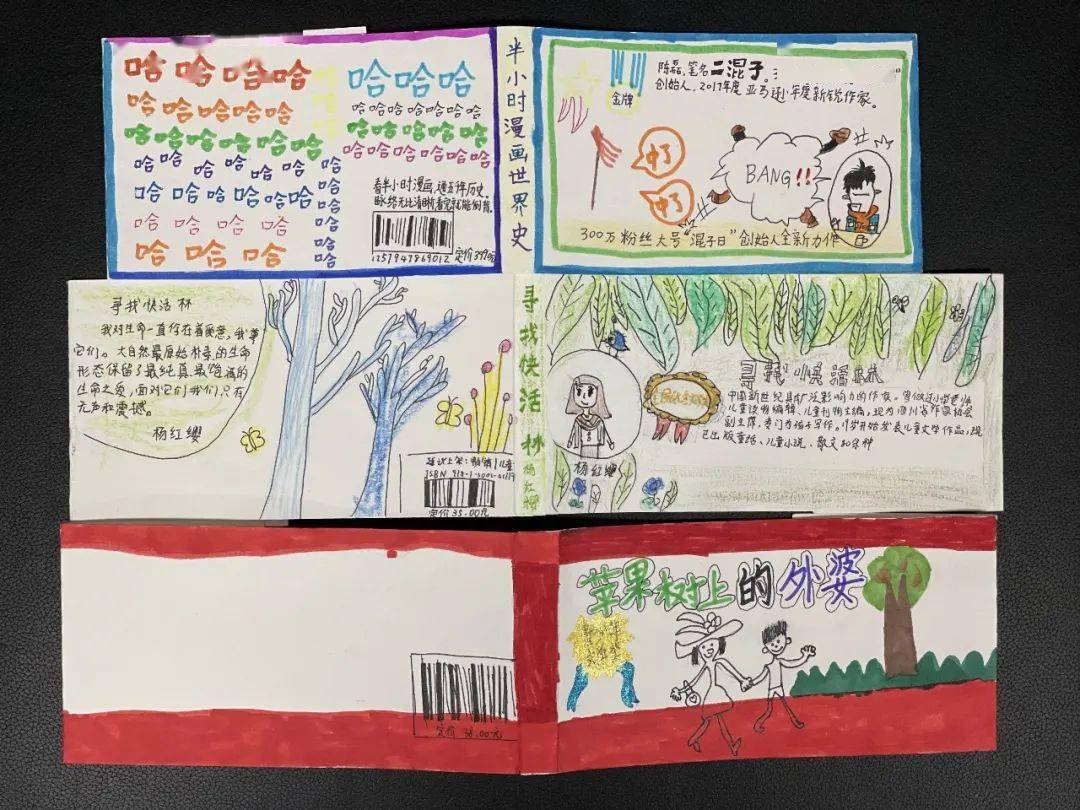 哈哈哈哈
哈哈哈哈哈
哈哈哈哈哈哈哈
哈哈哈哈哈哈
哈哈哈哈哈哈
哈哈哈哈
哈哈哈
哈哈哈
哈哈哈哈哈哈哈
哈哈哈哈哈
哈哈哈哈哈哈
哈
哈
哈
哈
哈
看半小时漫画,通五千年历史,
脉络无比清晰,看完就能倒背。
1257947869012
定价
半小时漫画世界史
陈磊,笔名二混子。
创始人,2017年度亚马逊年度新锐作家。
金牌
中了
中了
BANG!!
300万粉丝大号“混子曰”创始人全新力作
寻找快活林
我对生命一直存在着敬意,我尊
它们。大自然最原始朴导的生命
形态保留了最纯真最饱满的
生命之爱,面对它们我们只有
无声和震撼。
杨红缨
建议上架:畅销|儿童
ISBN 978-7-5001-
定价 35.00元
寻找快活林
杨红樱
寻找快活林
中国新世纪具有广泛影响力的作家。曾做过小学老师
儿童读物编辑、儿童刊物主编,现为四川省作家协会
副主席,专门为孩子写作。19岁开始发表儿童文学作品,现
已出版童话、儿童小说、散文80余种
杨红缨
定价 38.00元
苹果树上的外婆